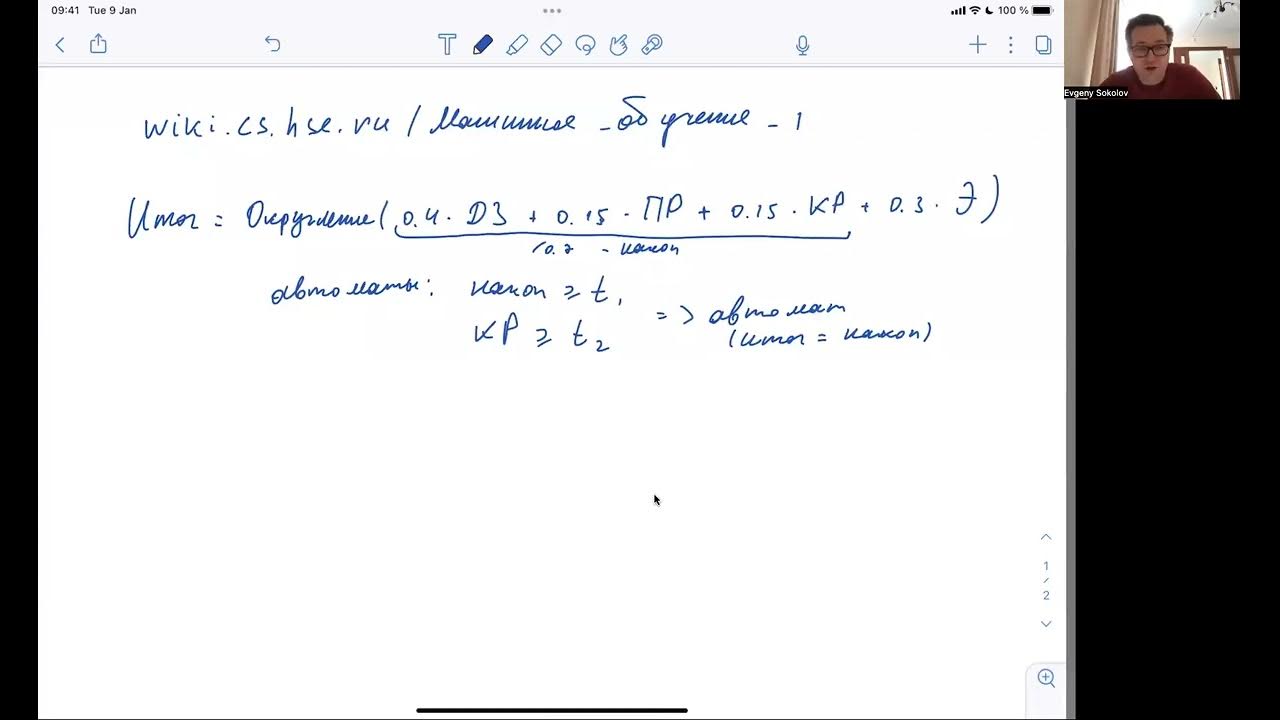 09:41 Tue 9 Jan
100 %
Evgeny Sokolov
wiki.cs.hse.ru/Машинное_обучение_1
Итог = Округление(0.4 · ДЗ + 0.15 · ПР + 0.15 · КР + 0.3 · Э)
/0.7 - накоп
автоматы: накоп ≥ t₁
КР ≥ t₂
=> автомат
(итог = накоп)
1
/
2